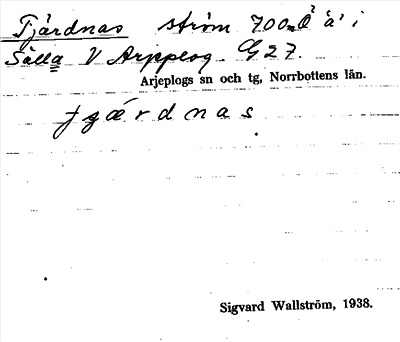 Tjårdnas ström 700 m å i
Sälla V Arjeplog G 27.
Arjeplogs sn och tg, Norrbottens län.
tjærdnas
Sigvard Wallström, 1938.